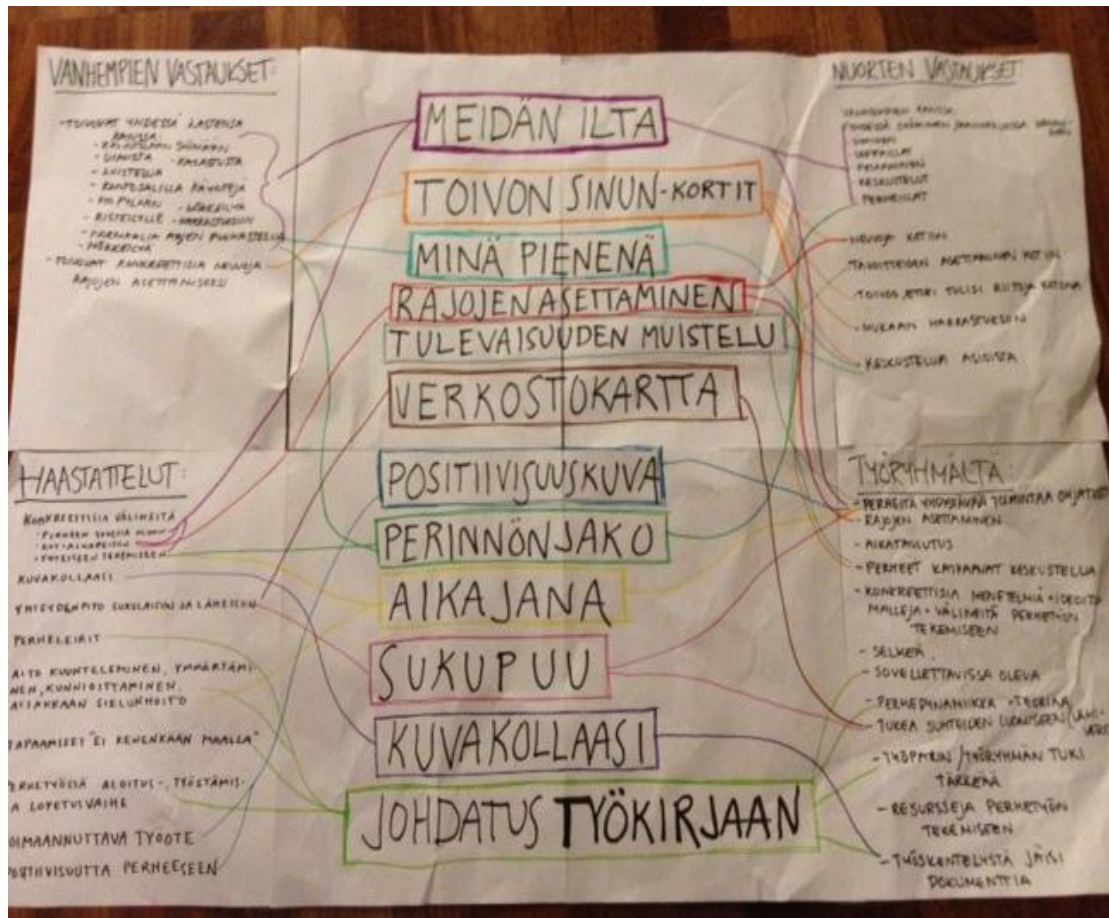 VANHEMPIEN VASTAUKSET:
- TOIVOVAT YHDESSÄ LASTENSA
KANSSA:
- RAVINTOLAAN SYÖMÄÄN
- UIMISTA - KALASTUSTA
- LUISTELUA
- KUNTOSALILLA KÄYNTEJÄ
- RISTEILYLLE - HARRASTUKSIIN
- MÖKKEILYÄ
- TOIVOVAT KONKREETTISIA NEUVOJA
RAJOJEN ASETTAMISEKSI
MEIDÄN ILTA
TOIVON SINUN-KORTIT
MINÄ PIENENÄ
RAJOJEN ASETTAMINEN
TULEVAISUUDEN MUISTELU
VERKOSTOKARTTA
POSITIIVISUUSKUVA
PERINNÖNJAKO
AIKAJANA
SUKUPUU
KUVAKOLLAASI
JOHDATUS TYÖKIRJAAN
NUORTEN VASTAUKSET
VANHEMPIEN KANSSA:
PELAAMINEN
KESKUSTELUT
PERHEILLAT
- NEUVOJA KOTIIN
TAVOITTEIDEN ASETTAMINEN KOTIIN
- TOIVOO, ETTEI TULISI RIITOJA KOTONA
- MUKAAN HARRASTUKSIIN
- KESKUSTELUA ASIOISTA
HAASTATTELUT:
KONKREETTISIA VÄLINEITÄ
- PERHEEN YHDESSÄ OLOON
- YHTEISEEN TEKEMISEEN
KUVAKOLLAASI
YHTEYDENPITO SUKULAISIIN JA LÄHEISIIN
PERHELEIRIT
AITO KUUNTELEMINEN, YMMÄRTÄMI-
NEN, KUNNIOITTAMINEN
ASIAKKAAN SIELUNHOITO
TAPAAMISET "EI KENENKÄÄN MAALLA"
PERHETYÖSSÄ ALOITUS-, TYÖSTÄMIS-
JA LOPETUSVAIHE
VOIMAANNUTTAVA TYÖOTE
POSITIIVISUUTTA PERHEESEEN
TYÖRYHMÄLTÄ:
- PERHEITÄ YHDISTÄVÄÄ TOIMINTAA OHJATUSTI
- RAJOJEN ASETTAMINEN
- AIKATAULUTUS
- PERHEET KAIPAAVAT KESKUSTELUA
- KONKREETTISIA MENETELMIÄ + IDEOITA
MALLEJA + VÄLINEITÄ PERHETYÖN
TEKEMISEEN
- SELKEÄ
- SOVELLETTAVISSA OLEVA
- PERHEDYNAMIIKKA - TEORIAA
- TUKEA SUHTEIDEN LUOMISEEN
- TYÖPARIN/TYÖRYHMÄN TUKI
TÄRKEÄÄ
- RESURSSEJA PERHETYÖN
TEKEMISEEN
- TYÖSKENTELYSTÄ JÄISI
DOKUMENTTIA